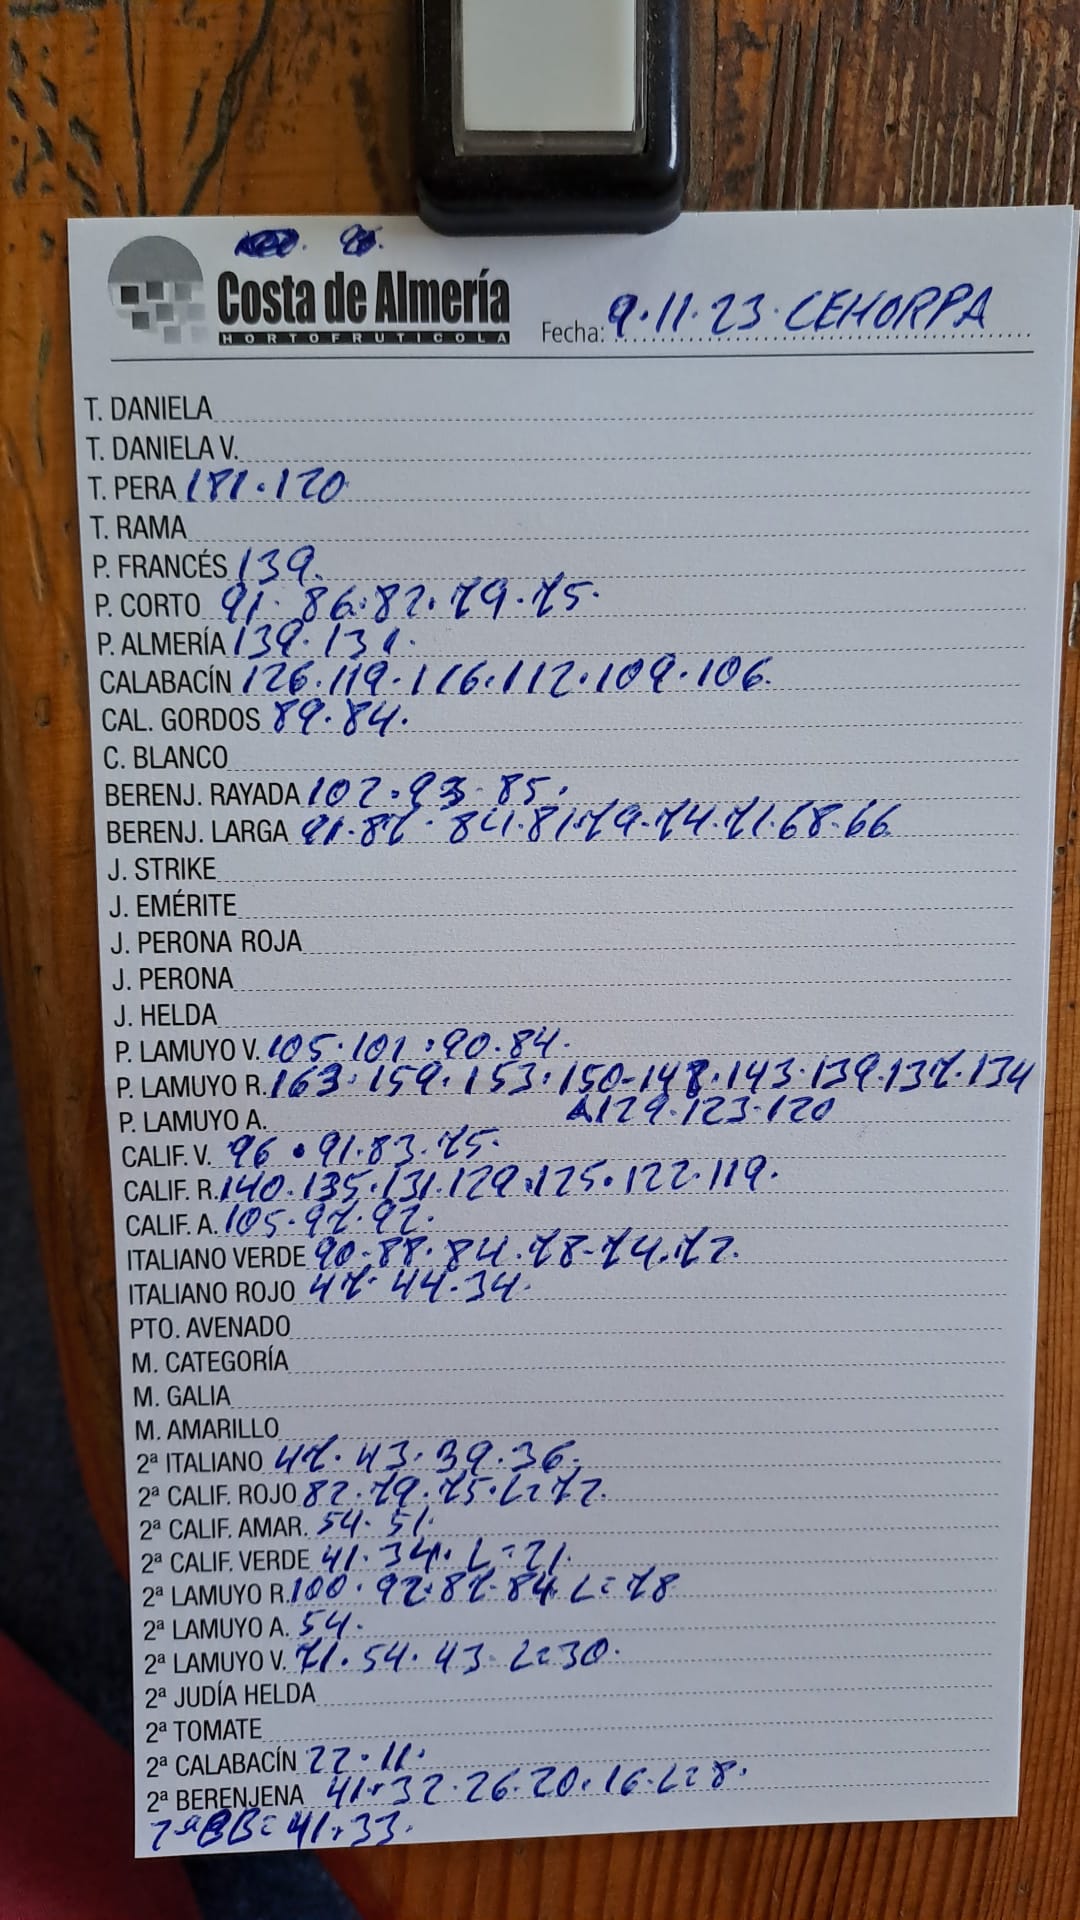 Costa de Almería
HORTOFRUTICOLA
Fecha: 9.11.23. CEHORPA
T. DANIELA
T. DANIELA V.
T. PERA 181.120
T. RAMA
P. FRANCÉS 139.
P. CORTO 91. 86.82.79.75.
P. ALMERÍA 139.131.
CALABACÍN 126.119.116.112.109.106.
CAL. GORDOS 89.84.
C. BLANCO
BERENJ. RAYADA 102.93.85.
BERENJ. LARGA 91.87.84.81.79.74.71.68.66
J. STRIKE
J. EMÉRITE
J. PERONA ROJA
J. PERONA
J. HELDA
P. LAMUYO V. 105.101.90.84.
P. LAMUYO R. 163.159.153.150-148.143.139.137.134
P. LAMUYO A. 129.123.120
CALIF. V. 96.91.83.75.
CALIF. R. 140.135.131.129.125.122.119.
CALIF. A. 105.97.92.
ITALIANO VERDE 90-88.84.78-74.72.
ITALIANO ROJO 47.44.34.
PTO. AVENADO
M. CATEGORÍA
M. GALIA
M. AMARILLO
2ª ITALIANO 47.43.39.36.
2ª CALIF. ROJO 82.79.75.L=72.
2ª CALIF. AMAR. 54.51.
2ª CALIF. VERDE 41.34.L=21.
2ª LAMUYO R. 100.92.87.84.L=78
2ª LAMUYO A. 54.
2ª LAMUYO V. 71.54.43.L=30.
2ª JUDÍA HELDA
2ª TOMATE
2ª CALABACÍN 22.11.
2ª BERENJENA 41.32.26.20.16.L=8.
2ª BB=41.33.